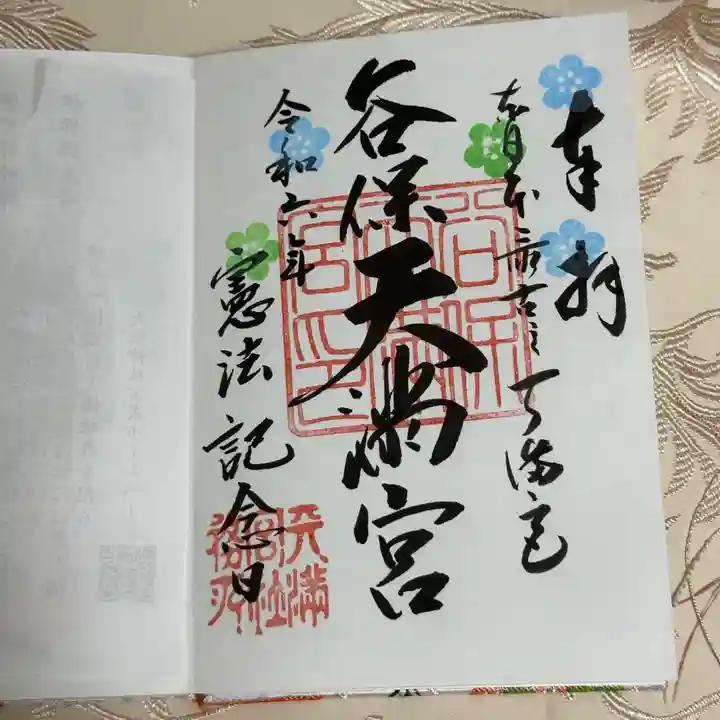 奉拝
東日本最古之天満宮
谷保天満宮
谷保天満宮印
令和六年
憲法記念日
天満宮社務所